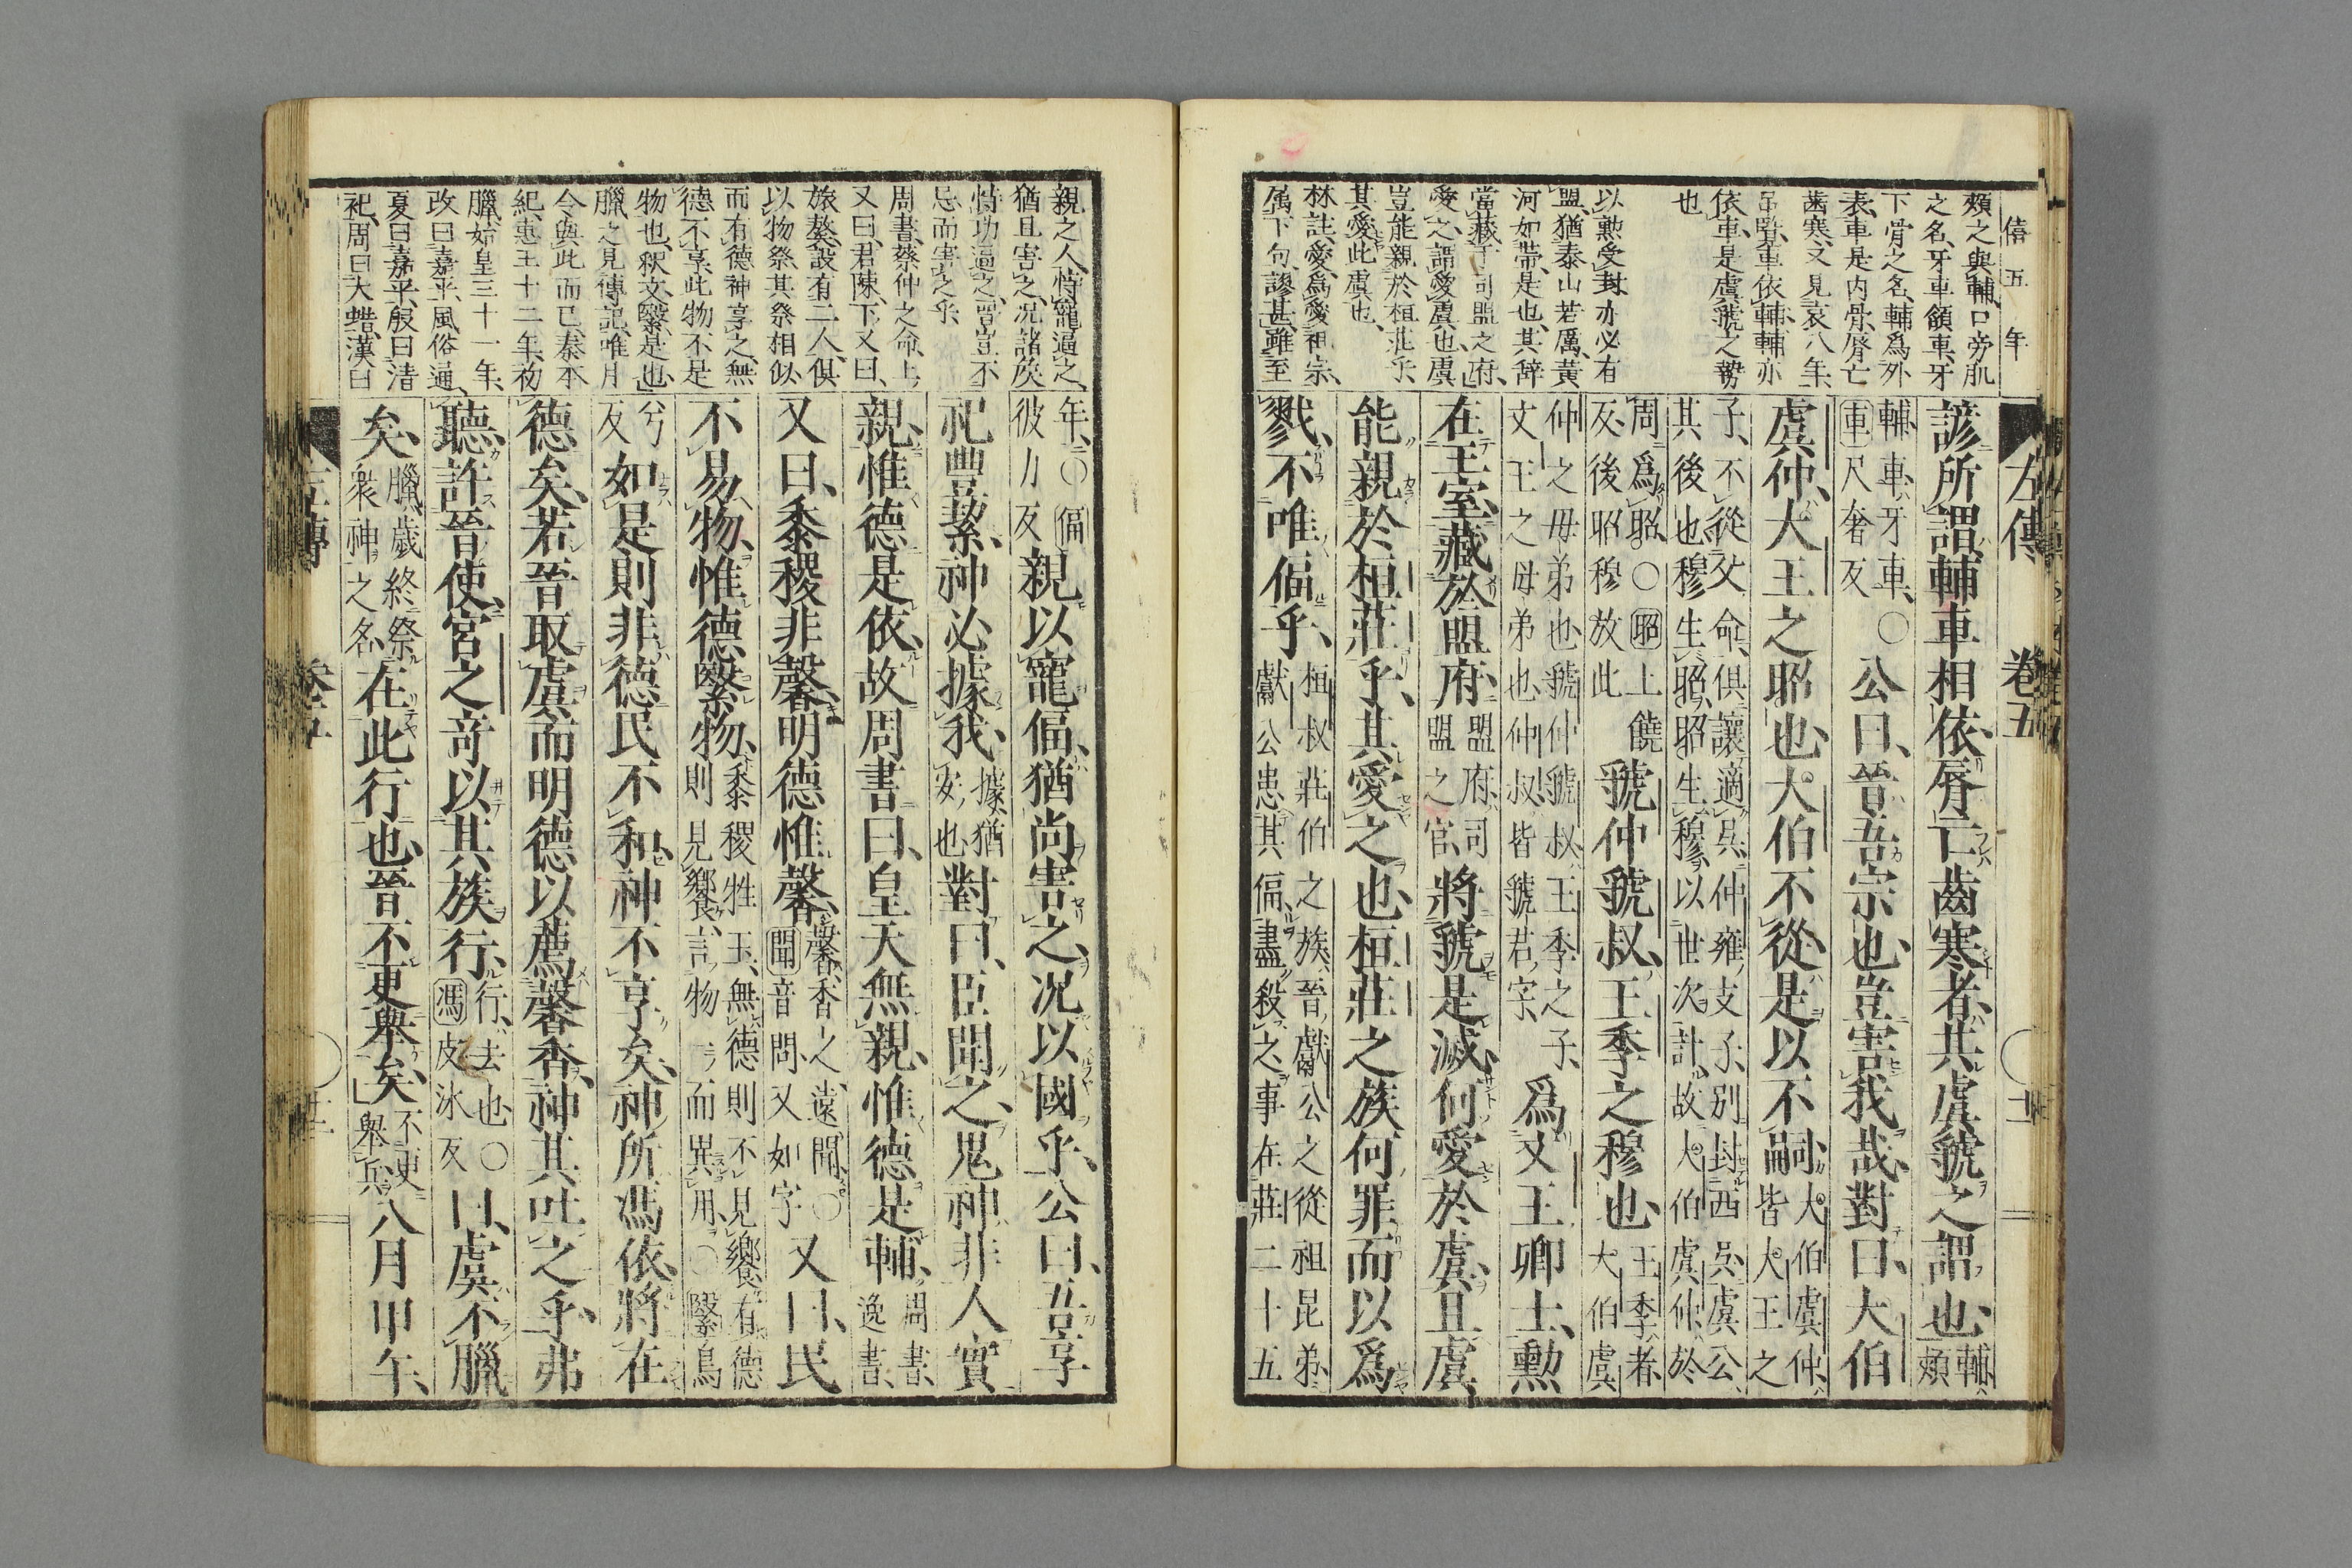 僖五年
頰之與輔口旁肌
之名牙車頷車牙
下骨之名輔爲外
表車是内骨脣亡
歯寒又見哀八年
呂覧車依輔輔亦
依車是虞虢之勢
也
以勲受封亦必有
盟猶泰山若厲黄
河如帶是也其辭
當藏于司盟之府
愛之謂愛虞也虞
豈能親於桓莊乎
其愛此虞也
林註愛爲愛祖宗
属下句謬甚雖至
左傳 卷五
諺所謂輔車相依脣亡齒寒者其虞虢之謂也輔頰
輔車牙車〇車尺奢反公曰晉吾宗也豈害我哉對曰大伯
虞仲大王之昭也大伯不從是以不嗣大伯虞仲皆大王之
子不從父命俱讓適呉仲雍支子別封西呉虞公其後也穆生昭昭生穆以世次計故大伯虞仲於
周爲昭〇昭上饒反後昭穆放此虢仲虢叔王季之穆也王季者大伯虞
仲之母弟也虢仲虢叔王季之子文王之母弟也仲叔皆虢君字爲文王卿士勲
在王室藏於盟府盟府司盟之官將虢是滅何愛於虞且虞
能親於桓莊乎其愛之也桓莊之族何罪而以爲
戮不唯偪乎桓叔莊伯之族晉獻公之從祖昆弟獻公患其偪盡殺之事在莊二十五
親之人恃寵逼之
猶且害之况諸侯
恃功逼之晉豈不
忌而害之乎
周書蔡仲之命上
又曰君陳下又曰
旅獒設有二人俱
以物祭其祭相似
而有德神享之無
德不享此物不是
物也釈文繄是也
臘之見傳記唯月
今與此而已秦本
紀惠王十二年初
臘始皇三十一年
改曰嘉平風俗通
夏曰嘉平殷曰清
祀周曰大蜡漢曰
年〇偪彼力反親以寵偪猶尚害之况以國乎公曰吾享
祀豊絜神必據我據猶安也對曰臣聞之鬼神非人實
親惟德是依故周書曰皇天無親惟德是輔周書逸書
又曰黍稷非馨明德惟馨馨香之遠聞〇聞音問又如字又曰民
不易物惟德繄物黍稷牲玉無德則不見饗有德則見饗言物一而異用〇繄烏
兮反如是則非德民不和神不享矣神所馮依將在
德矣若晉取虞而明德以薦馨香神其吐之乎弗
聽許晉使宮之奇以其族行行去也〇馮皮冰反曰虞不臘
矣臘歳終祭衆神之名在此行也晉不更舉矣不更舉兵八月甲午
左傳 卷五 十二